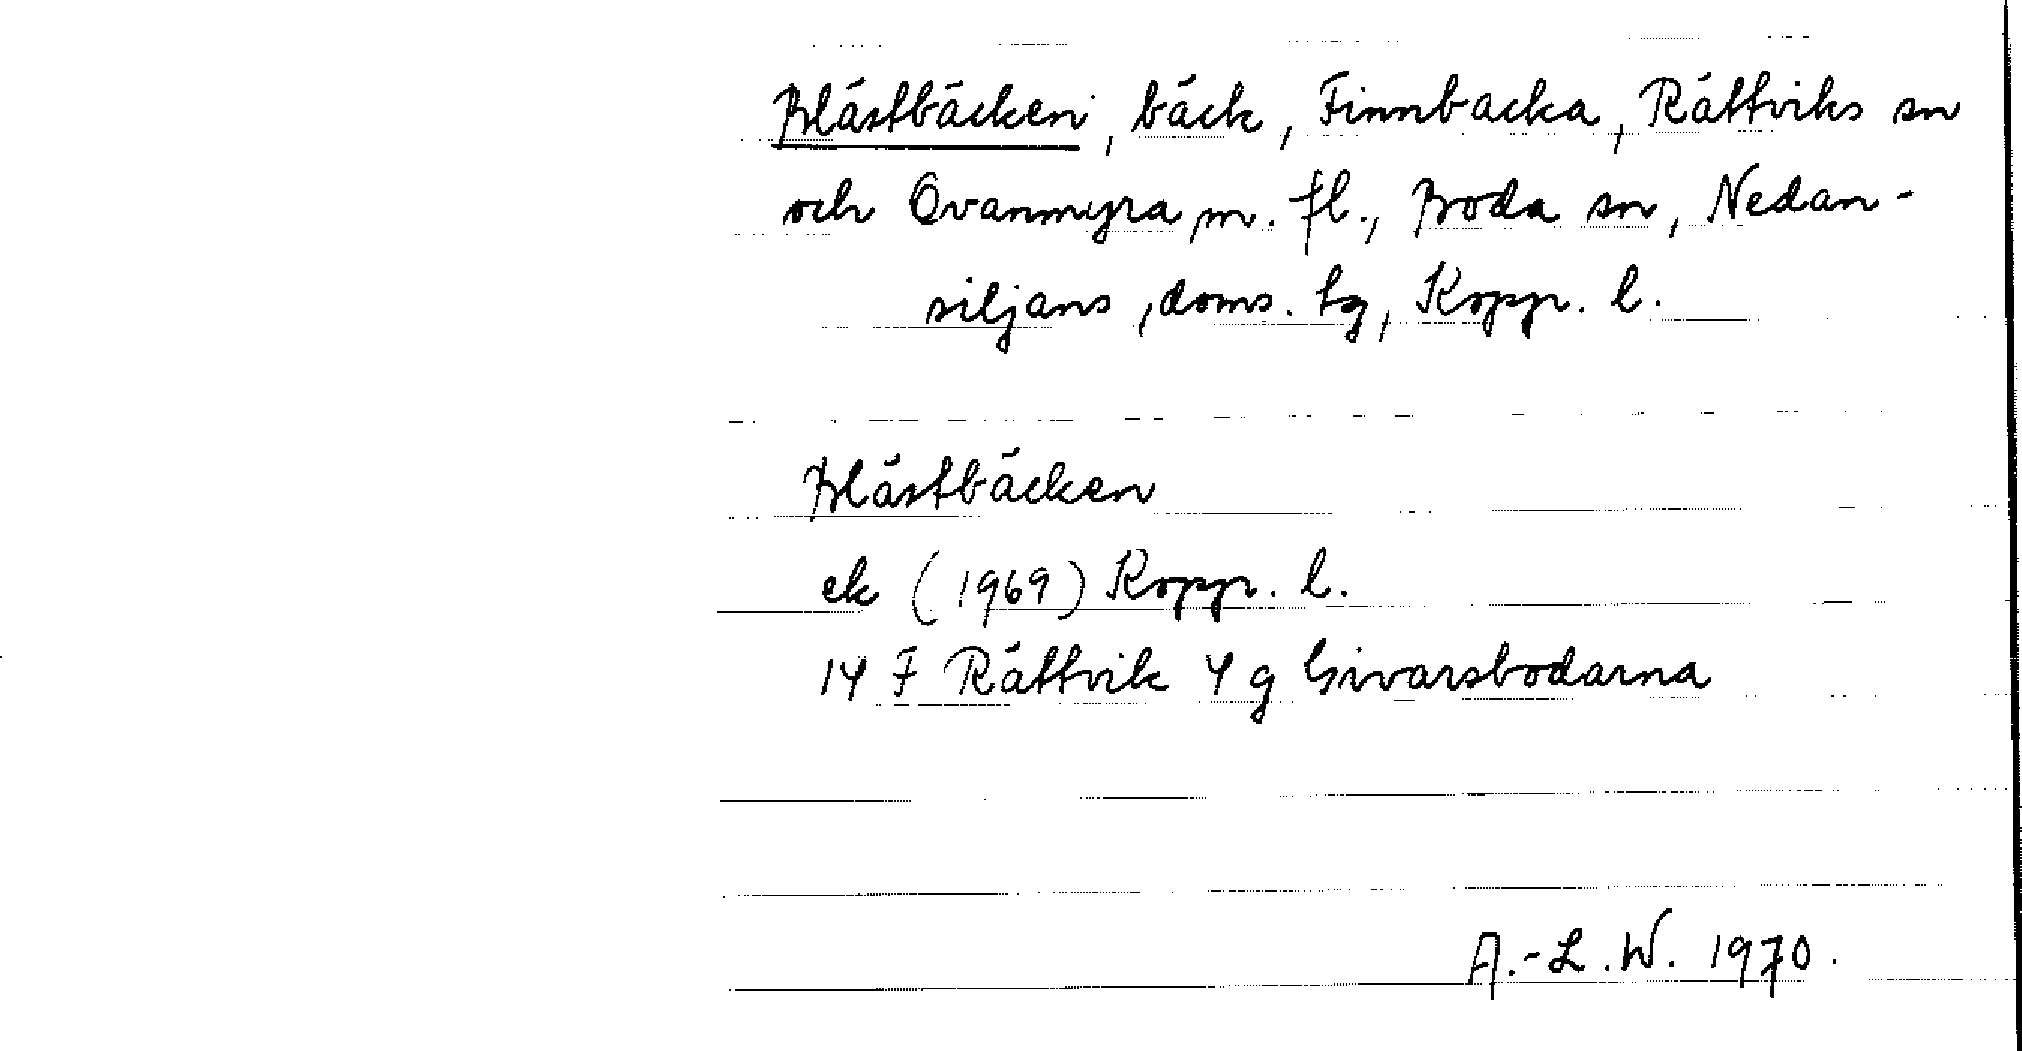 Blästbäcken, bäck, Finnbacka, Rättviks sn
och Ovanmyra m. fl., Boda sn, Nedan-
siljans doms. tg, Kopp. l.
Blästbäcken
ek (1969) Kopp. l.
14 F Rättvik 4 g Givarsbodarna
A.-L.W. 1970.